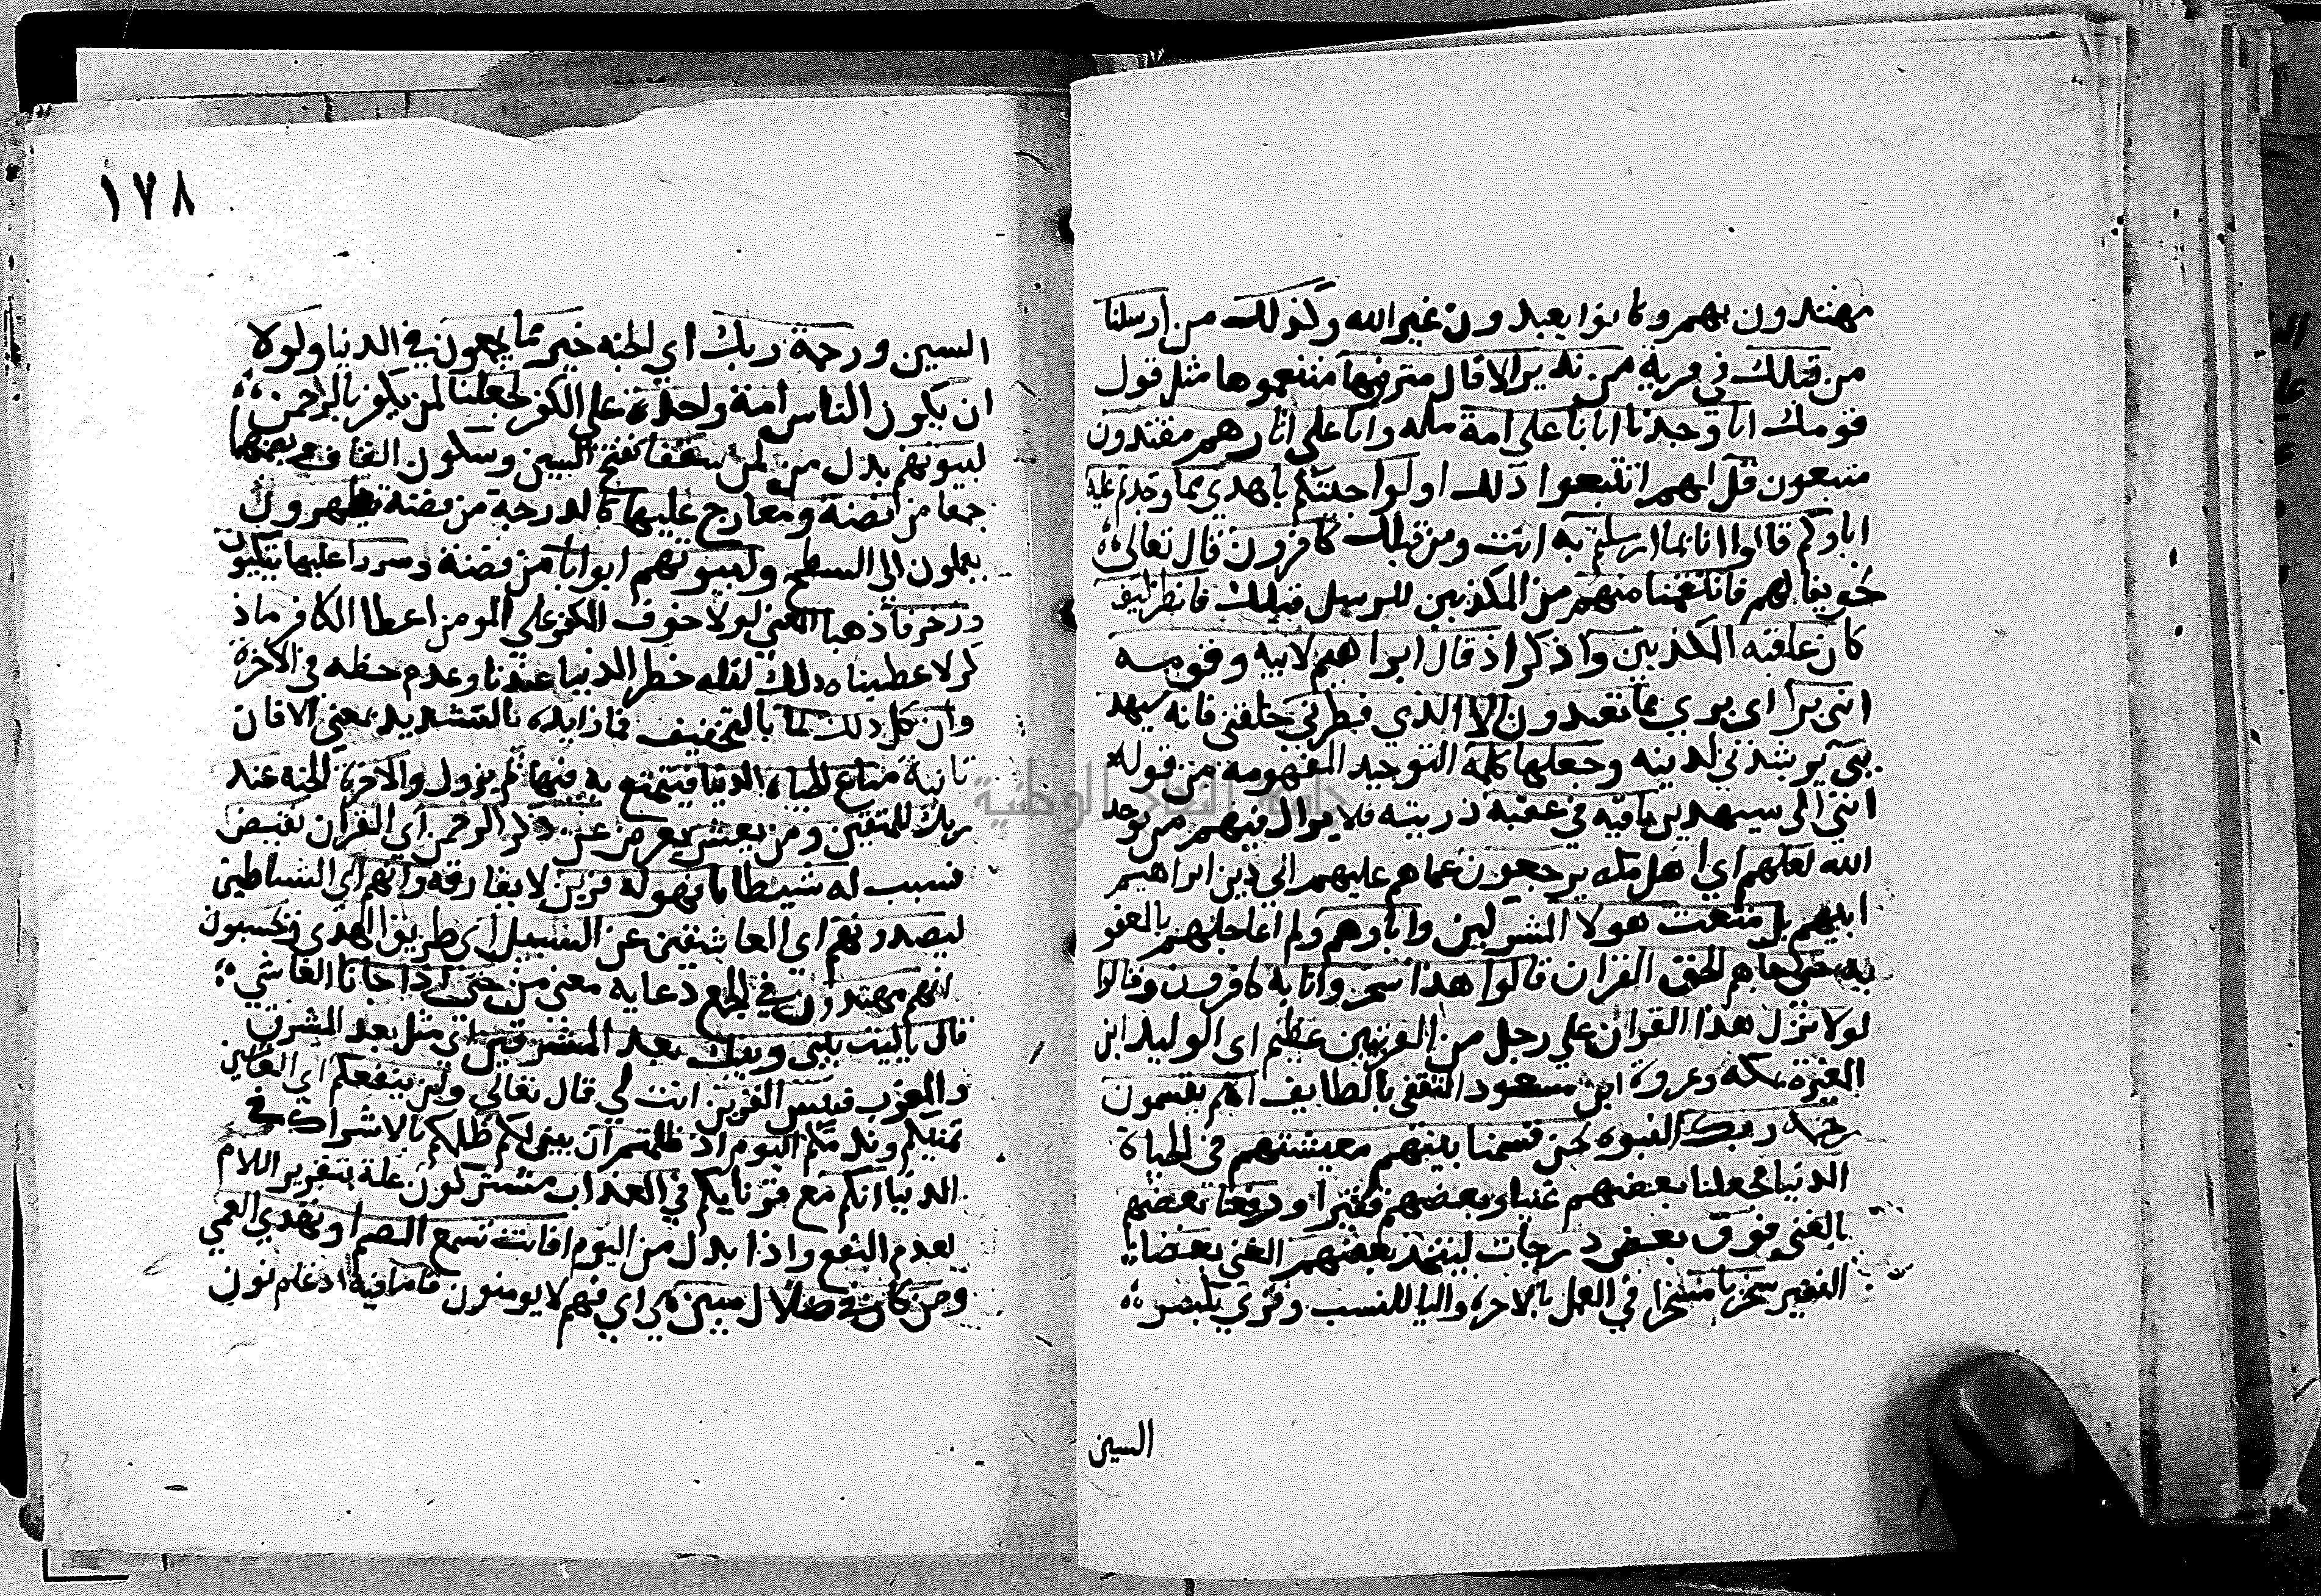 مهتدون بهم وكانوا يعبدون غير الله وكذلك من ارسلنا
من قبلك في قرية من نذير الا قال مترفيها متنعموها مثل قول
قومك انا وجدنا ابانا على امة مله وانا على اثارهم مقتدون
متبعون قل لهم اتتبعوا ذلك اولوا جئتكم باهدي مما وجدتم عليه
اباوكم قالوا انا بما ارسلتم به انت ومن قبلك كافرون قال تعالى
تخويفا لهم فانتقمنا منهم من المكذبين للرسل قبلك فانظر كيف
كان عاقبه المكذبين واذكر اذ قال ابراهيم لابيه وقومه
انني برا اي بري مما تعبدون الا الذي فطرني خلقني فانه سيهد
يني يرشدني لدينه وجعلها كلمه التوحيد المفهومه من قوله
انني الى سيهدين باقيه في عقبه ذريته فلا يزال فيهم من يوحد
الله لعلهم اي اهل مكه يرجعون عما هم عليهم الي دين ابراهيم
ابيهم بل متعت هولا المشركين واباوهم ولم اعاجلهم بالعقو
به حتى جاهم الحق القران قالوا هذا سحر وانا به كافرون وقالوا
لولا نزل هذا القران علي رجل من القريتين عظيم اي الوليد ابن
المغيرة بمكه وعروة ابن مسعود الثقفي بالطايف اهم يقسمون
رحمة ربك النبوه نحن قسمنا بينهم معيشتهم في الحياة
الدنيا فجعلنا بعضهم غنيا وبعضهم فقيرا ورفعنا بعضهم
بالغني فوق بعض درجات ليتخذ بعضهم الغني بعضا
الفقير سخريا مسخرا في العمل بالاجرة واليا للنسب وقري بكسر
السين
١٧٨
السين ورحمة ربك اي الجنه خير مما يجمعون في الدنيا ولولا
ان يكون الناس امة واحدة علي الكفر لجعلنا لمن يكفر بالرحمن
لبيوتهم بدل من لمن سقفا بفتح السين وسكون القاف وبضمها
جمعا من فضه ومعارج عليها كالدرجة من فضة يظهرون
يعلون الى السطح ولبيوتهم ابوابا من فضة وسررا عليها يتكيون
وزخرفا ذهبا المعني لولا خوف الكفر علي المومن اعطا الكافر ماذ
كر لاعطيناه ذلك لقله خطر الدنيا عندنا وعدم حظه في الاخرة
وان كل ذلك لما بالتخفيف فما زايده بالتشديد بمعني الا فان
نافية متاع الحياة الدنيا فيتمتع به فيها ثم يزول والاخرة الجنه عند
ربك للمتقين ومن يعش يعرض عن ذكر الرحمن اي القران نقيض
نسبب له شيطانا فهو له قرين لا يفارقه وانهم اي الشياطين
ليصدونهم اي العاشين عن السبيل اي طريق الهدي ويحسبون
انهم مهتدون في الجمع رعاية معني من حتى اذا جانا العاشي
قال ياليت بيني وبينك بعد المشرقين اي مثل بعد المشرق
والمغرب فبئس القرين انت لي قال تعالى ولن ينفعكم اي العاشين
تمنيكم وندمكم اليوم اذ ظلمتم ان بين لكم ظلمكم بالاشراك في
الدنيا انكم مع قرنايكم في العذاب مشتركون علة بتقرير اللام
لعدم النفع واذا بدل من اليوم افانت تسمع الصم او تهدي العمي
ومن كان في ضلال مبين اي فهم لا يومنون فاما فيه ادغام نون